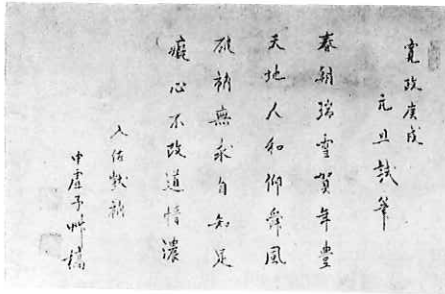 寛政庚戌
元旦試筆
春朝瑞雪賀年豊
天地人和仰舜風
破衲無求自知足
痴心不改道情濃
中虚子艸稿